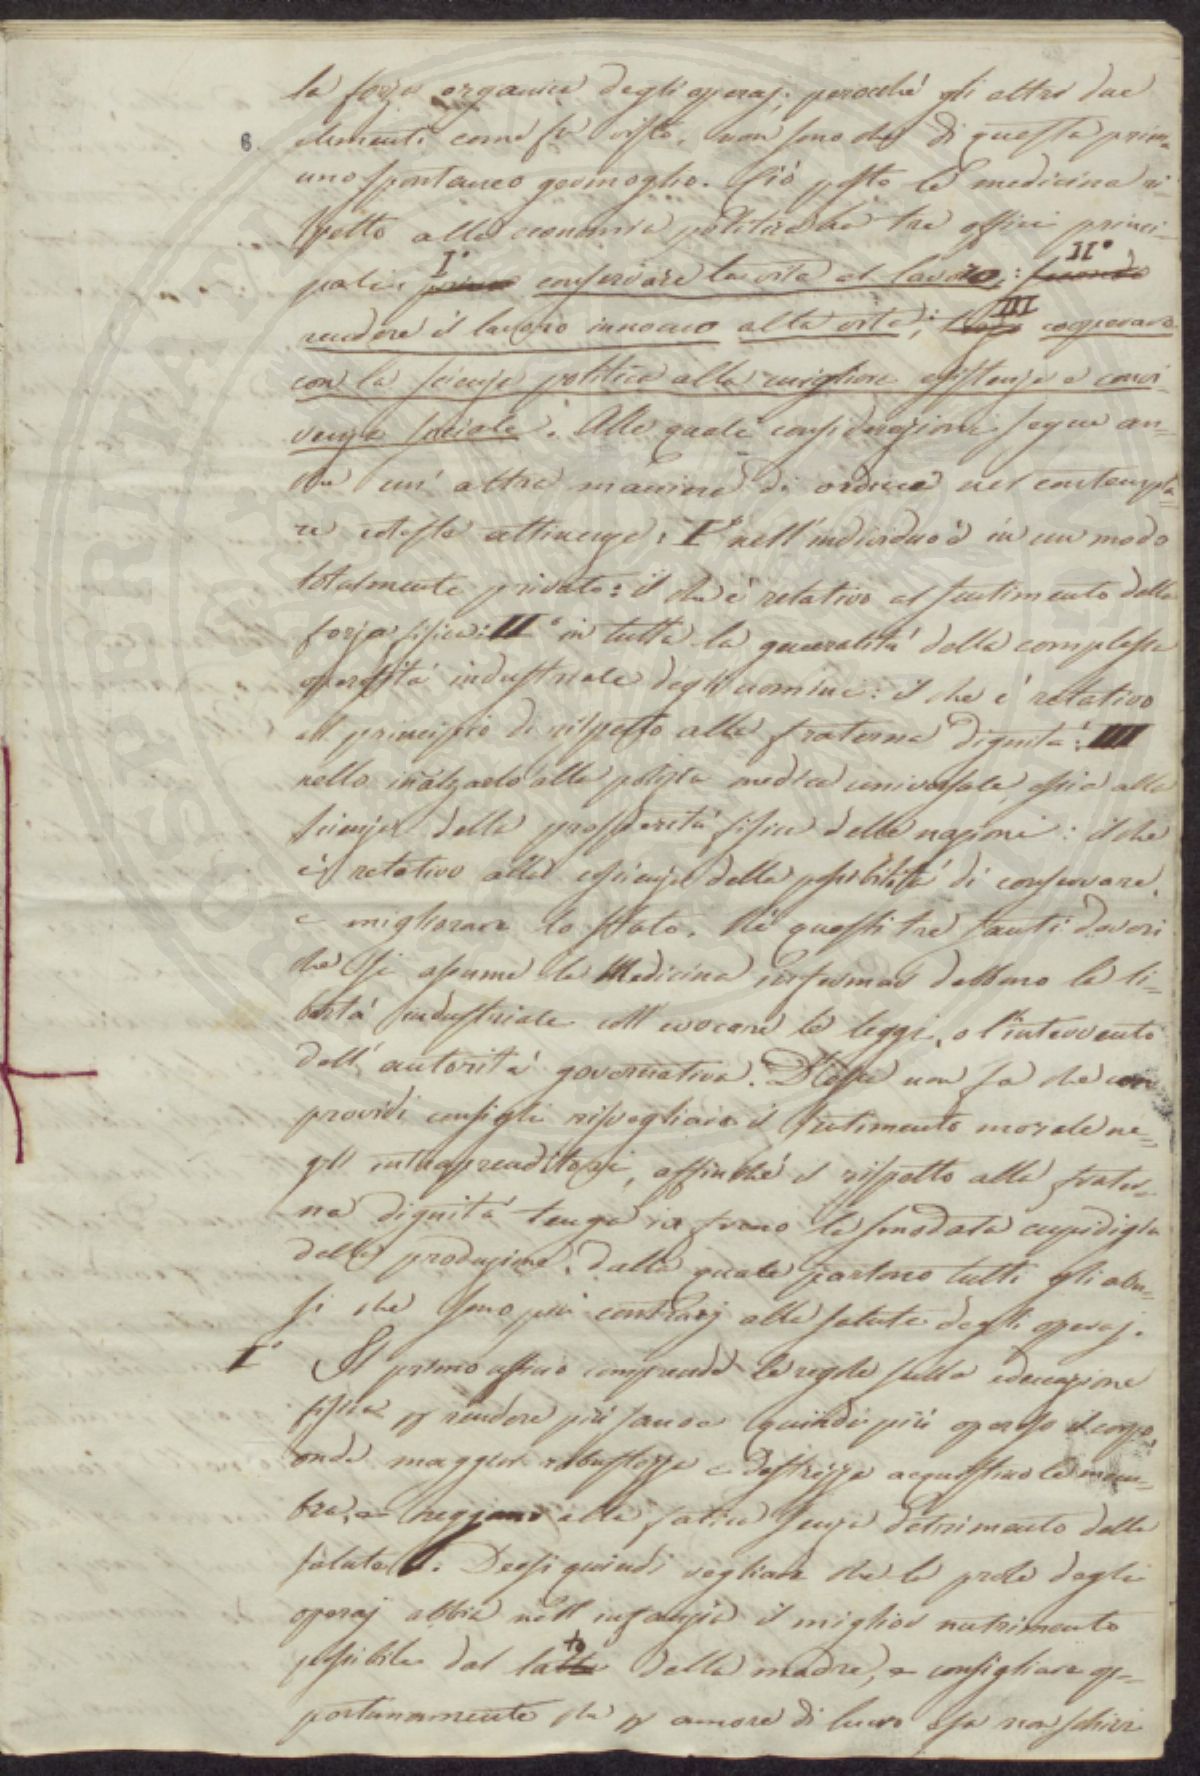 la forza organica degli operaj; perocché gli altri due
6. elementi come fu visto, non sono che di questa prima
uno spontaneo germoglio. Ciò posto la medicina ri-
spetto alla economia politica ha tre offici princi-
pali: I° primo conservare la vita al lavoro: II° secondo
rendere il lavoro innocuo alla vita; III terzo cooperare
con la scienza politica alla migliore esistenza e convi-
venza sociale. Alle quali considerazioni segue an-
che un' altra maniera di ordine nel contempla-
re coteste attinenze: I° nell'individuo è in un modo
totalmente privato: il che è relativo al sentimento della
forza fisica: II° in tutta la generalità della complessa
operosità industriale degli uomini: il che è relativo
al principio di rispetto alla fraterna dignità: III
nello inalzarlo alla polizia medica universale, ossia alla
scienza della prosperità fisica delle nazioni: il che
è relativo alla coscienza della possibilità di conservare,
e migliorare lo stato. Né questi tre santi doveri
che si assume la Medicina debbono la li-
bertà industriale coll' evocare le leggi, o l'intervento
dell' autorità governativa. Essa non fa che con
providi consigli risvegliare il sentimento morale ne-
gli intraprenditori, affinché il rispetto alla frater-
na dignità tenga in freno la smodata cupidigia
della produzione, dalla quale partono tutti gli abu-
si che sono più contrarj alla salute degli operaj.
I° Il primo officio comprende le regole sulla educazione
fisica p rendere più sano e quindi più operoso il corpo,
onde maggior robustezza e destrezza acquistino le mem-
bra, e reggano alla fatica senza detrimento della
salute. Deesi quindi vegliare che la prole degli
operaj abbia nell' infanzia il miglior nutrimento
possibile dal latte della madre, e consigliare op-
portunamente che p amore di lucro essa non schivi